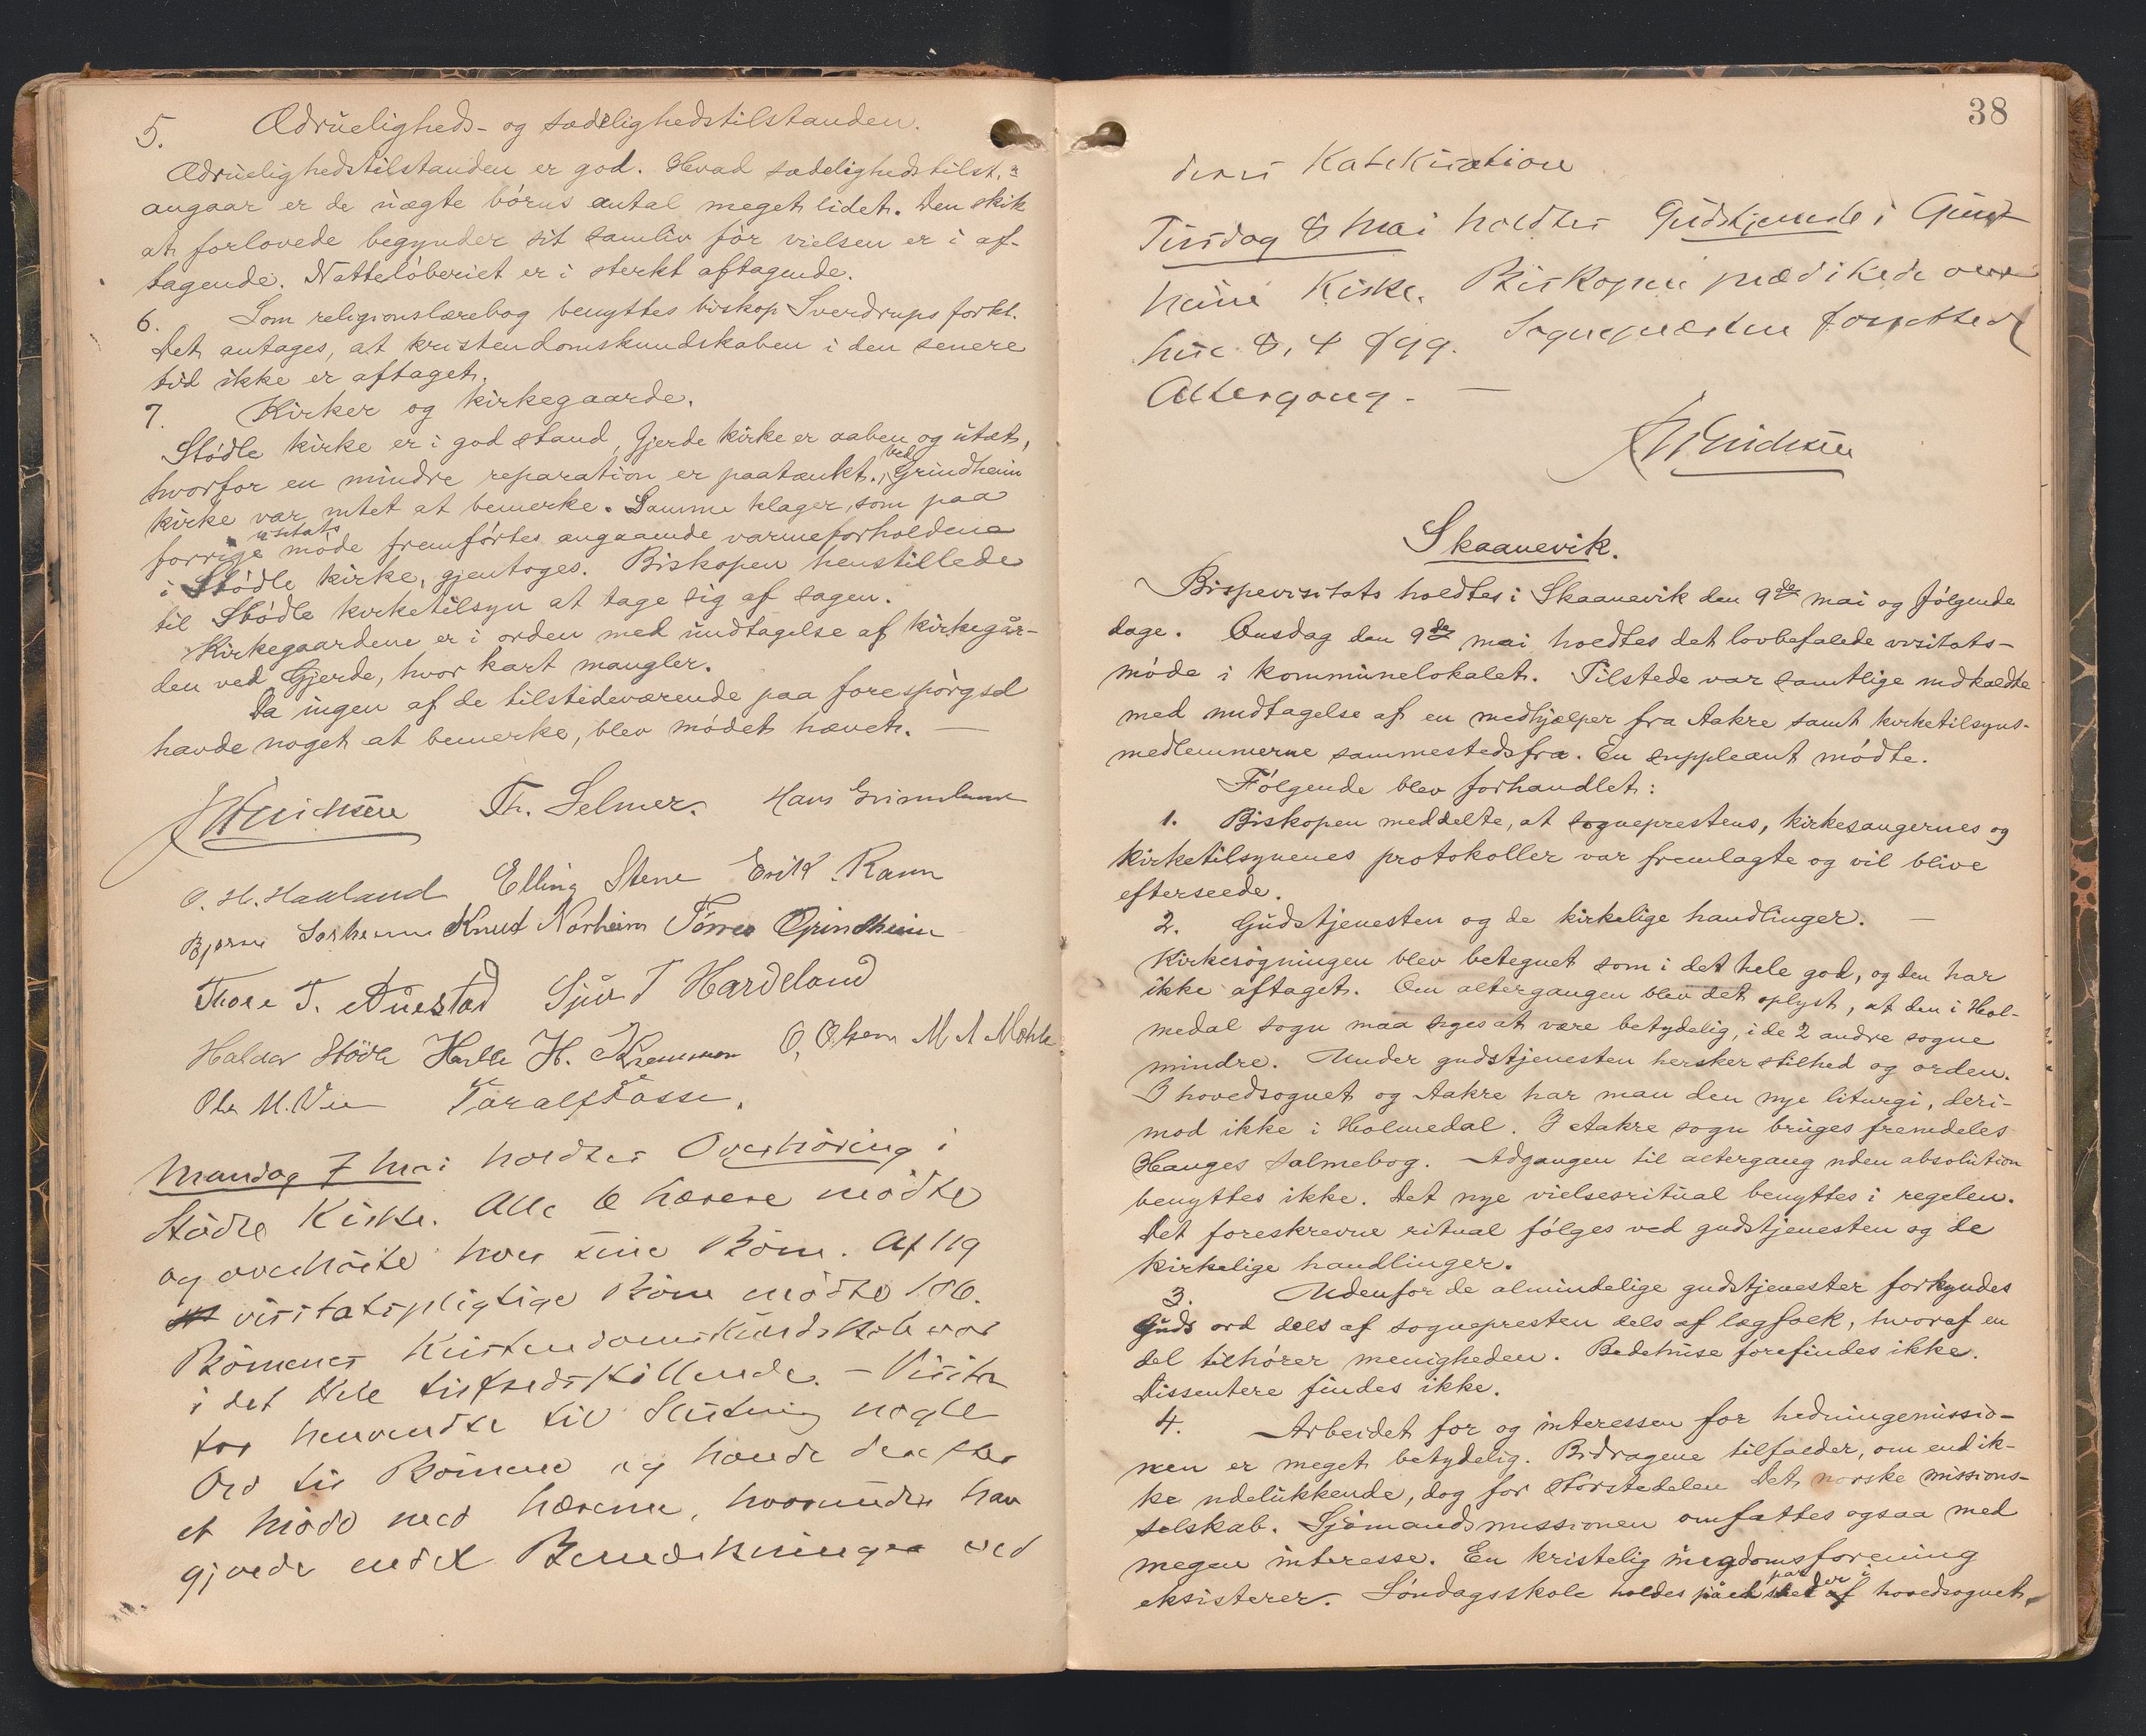 5. Ædrueligheds- og sædelighedstilstanden.
Ædruelighedstilstanden er god. Hvad sædelighedstilst.n
angaar er de uægte børns antal meget lidet. Den skik
at forlovede begynder sit samliv før vielsen er i af-
tagende. Natteløberiet er i sterkt aftagende.
6. Som religionslærebog benyttes biskop Sverdrups forkl.
Det antages, at kristendomskundskaben i den senere
tid ikke er aftaget.
7. Kirker og kirkegaarde.
Stødle kirke er i god stand, Gjerde kirke er aaben og utæt,
hvorfor en mindre reparation er paatænkt. Ved Grindheim
kirke var intet at bemerke. Samme klager, som paa
forrige visitats møde fremførtes angaaende varmeforholdene
i Stødle kirke, gjentoges. Biskopen henstillede
til Stødle kirketilsyn at tage sig af sagen.
Kirkegaardene er i orden med undtagelse af kirkegår-
den ved Gjerde, hvor kart mangler.
Da ingen af de tilstedeværende paa forespørgsel
havde noget at bemerke, blev mødet hævet. —
J W Erichsen Th. Selmer. Hans
O. H. Haaland Elling Stene Erik Ramn
Bjørne Knut Norheim Tørres Grindheim
Tore T. Sjur T Hardeland
Haldor Stødle H. O. Olsen M. A.
Ole M. Vie Taralf Fosse.
Mandag 7 Mai holdtes Overhøring i
Stødle Kirke. Alle 6 Lærere mødte
og overhørte hver sine Børn. Af 119
visitatspligtige Børn mødte 106.
Børnenes Kristendomskundskab var
i det Hele tilfredsstillende. – Visita
tor henvendte til Slutning nogle
Ord til Børnene og havde derefter
et Møde med Lærerne, hvorunder han
gjorde endel Bemerkninger ved
38
deres Katekisation
Tirsdag 8 Mai holdtes Gudstjeneste i Grind
heims Kirke. Biskopen prædikede over
Luc 8, 4 ffgg. Sognepræsten forrettede
Altergang. —
J W Erichsen
Skaanevik.
Bispevisitats holdtes i Skaanevik den 9de mai og følgende
dage. Onsdag den 9de mai holdtes det lovbefalede visitats-
møde i kommunelokalet. Tilstede var samtlige indkaldte
med undtagelse af en medhjælper fra Aakre samt kirketilsyns-
medlemmerne sammestedsfra. En suppleant mødte.
Følgende blev forhandlet:
1. Biskopen meddelte, at sogneprestens, kirkesangernes og
kirketilsynenes protokoller var fremlagte og vil blive
efterseede.
2. Gudstjenesten og de kirkelige handlinger. —
Kirkesøgningen blev betegnet som i det hele god, og den har
ikke aftaget. Om altergangen blev det oplyst, at den i Hol-
medal sogn maa siges at være betydelig, i de 2 andre sogne
mindre. Under gudstjenesten hersker stilhed og orden.
I hovedsognet og Aakre har man den nye liturgi, deri-
mod ikke i Holmedal. I Aakre sogn bruges fremdeles
Hauges salmebog. Adgangen til altergang uden absolution
benyttes ikke. Det nye vielsesritual benyttes i regelen.
Det foreskrevne ritual følges ved gudstjenesten og de
kirkelige handlinger.
3. Udenfor de almindelige gudstjenester forkyndes
Guds ord dels af sognepresten dels af lægfolk, hvoraf en
del tilhører menigheden. Bedehuse forefindes ikke.
Dissentere findes ikke.
4. Arbeidet for og interessen for hedningemissio-
nen er meget betydelig. Bidragene tilfalder, om end ik-
ke udelukkende, dog for størstedelen Det norske missions-
selskab. Sjømandsmissionen omfattes ogsaa med
megen interesse. En kristelig ungdomsforening
eksisterer. Søndagsskole holdes på et par steder i hovedsognet.